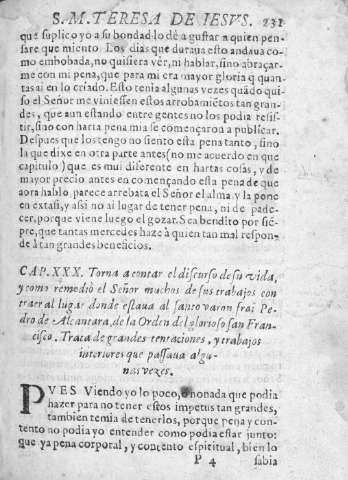 S. M. TERESA DE IESVS. 231
que suplico yo a su bondad lo dè a gustar a quien pen-
sare que miento. Los dias que duraua esto andaua co-
mo embobada, no quisiera vèr, ni hablar, sino abraçar-
me con mi pena, que para mi era mayor gloria q̃ quan-
tas ai en lo criado. Esto tenia algunas vezes quãdo qui-
so el Señor me viniessen estos arrobamiẽtos tan gran-
des, que aun estando entre gentes no los podia resis-
tir, sino con harta pena mia se començaron a publicar.
Despues que los tengo no siento esta pena tanto, sino
la que dixe en otra parte antes (no me acuerdo en que
capitulo) que es mui diferente en hartas cosas, y de
mayor precio antes en començando esta pena de que
aora hablo parece arrebata el Señor el alma, y la pone
en extasi, y assi no ai lugar de tener pena, ni de pade-
cer, porque viene luego el gozar. Sea bendito por siẽ-
pre, que tantas mercedes haze à quien tan mal respon-
de à tan grandes beneficios.
CAP. XXX. Torna a contar el discurso de su vida,
y como remediò el Señor muchos de sus trabajos con
traer al lugar donde estaua al santo varon frai Pe-
dro de Alcantara, de la Orden del glorioso san Fran-
cisco. Trata de grandes tentaciones, y trabajos
interiores que passaua algu-
nas vezes.
PVES Viendo yo lo poco, o nonada que podia
hazer para no tener estos impetus tan grandes,
tambien temia de tenerlos, porque pena y con-
tento no podia yo entender como podia estar junto:
que ya pena corporal, y contento espiritual, bien lo
P 4 sabia